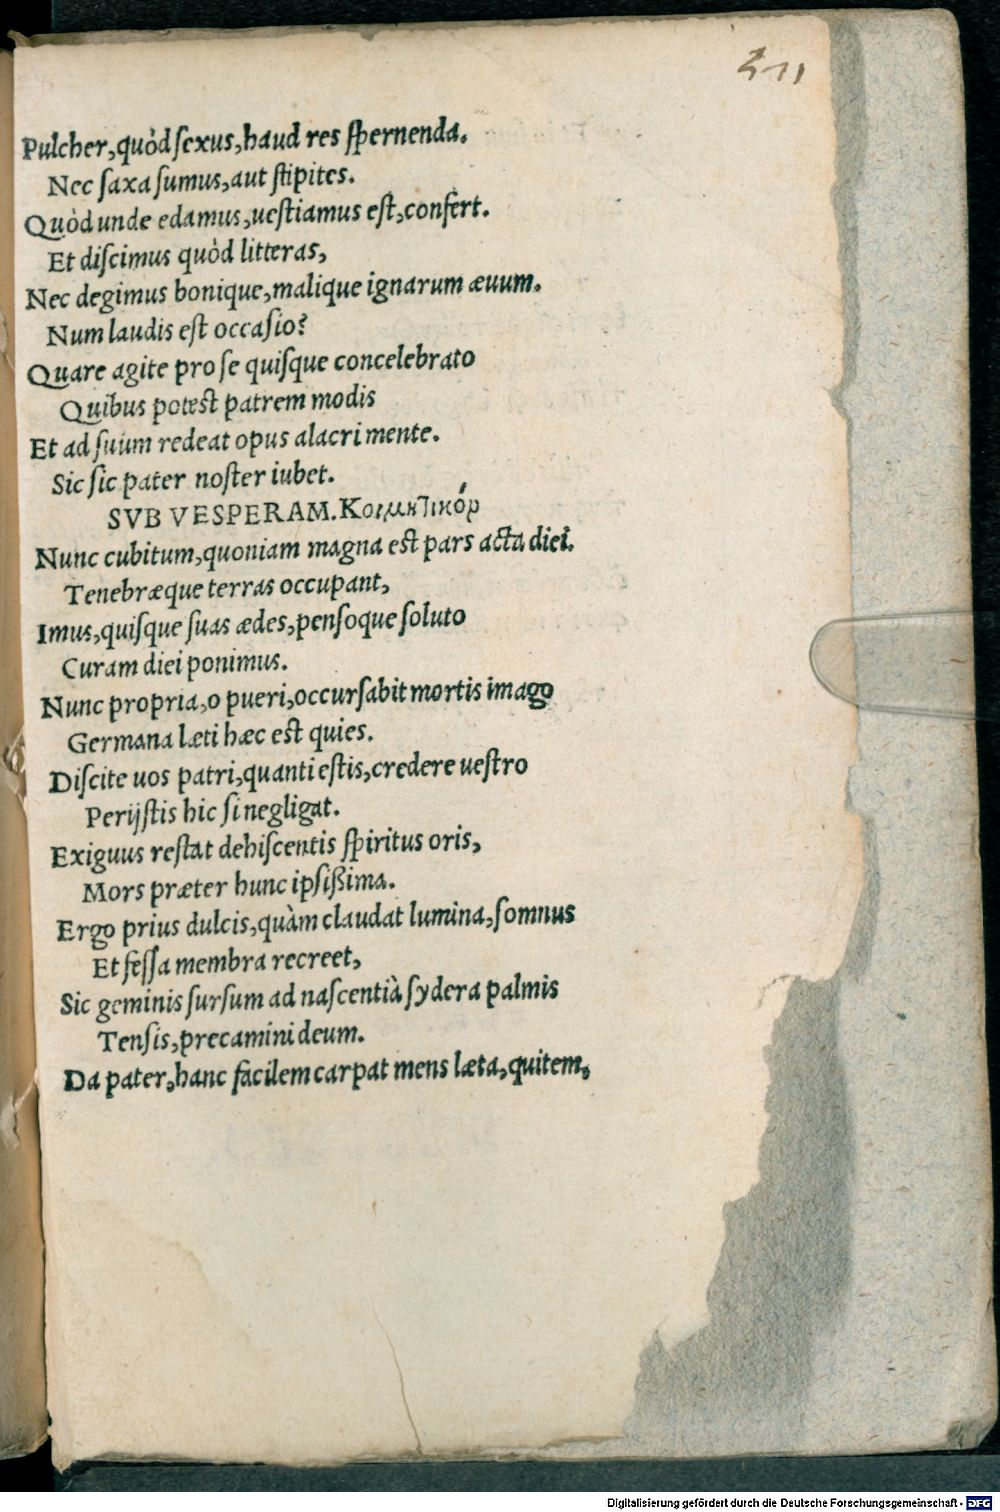 211
Pulcher,quòd ſexus,haud res ſpernenda.
Nec ſaxa ſumus,aut ſtipites.
Quòd unde edamus,ueſtiamus eſt,confèrt.
Et diſcimus quòd litteras,
Nec degimus bonique,malique ignarum æuum.
Num laudis eſt occaſio?
Quare agite pro ſe quiſque concelebrato
Quibus potest patrem modis
Et ad ſuum redeat opus alacri mente.
Sic ſic pater noſter iubet.
SVB VESPERAM.
Nunc cubitum,quoniam magna est pars acta diei.
Tenebræque terras occupant,
Imus,quiſque ſuas ædes,penſoque ſoluto
Curam diei ponimus.
Nunc propria,o pueri,occurſabit mortis imago
Germana læti hæc est quies.
Diſcite uos patri,quanti eſtis,credere ueſtro
Perijſtis hic ſi negligat.
Exiguus reſtat dehiſcentis ſpiritus oris,
Mors præter hunc ipſißima.
Ergo prius dulcis,quàm claudat lumina,ſomnus
Et feſſa membra recreet,
Sic geminis ſurſum ad naſcentià ſydera palmis
Tenſis,precamini deum.
Da pater,hanc facilem carpat mens læta,quitem,
Digitalisierung gefördert durch die Deutsche Forschungsgemeinschaft - DFG